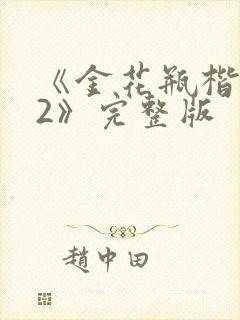 《金花瓶楷
2》完整版
趙中田